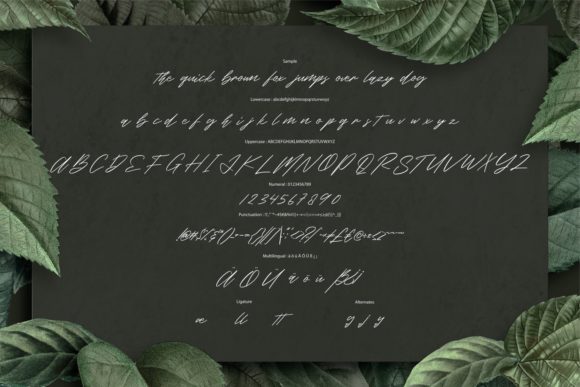 Sample
The quick brown fox jumps over lazy dog
Lowercase : abcdefghijklmnopqrstuvwxyz
a b c d e f g h i j k l m n o p q r s t u v w x y z
Uppercase : ABCDEFGHIJKLMNOPQRSTUVWXYZ
A B C D E F G H I J K L M N O P Q R S T U V W X Y Z
Numeral : 0123456789
1 2 3 4 5 6 7 8 9 0
Punctuation :
Multilingual : ä ö ü Ä Ö Ü ß ¿ ¡
Ä Ö Ü ä ö ü ß ¿ ¡
Ligature Alternates